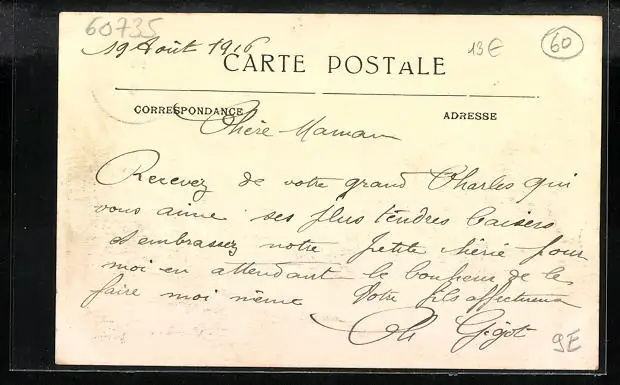 60735
19 Août 1916
13E
60
CARTE POSTALE
CORRESPONDANCE
ADRESSE
Chère Maman
Recevez de votre grand Charles qui
vous aime ses plus tendres baisers
et embrassez notre petite chérie pour
moi en attendant le bonheur de le
faire moi même Votre fils affectueux
Ch Gigot
9E